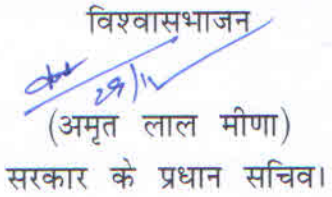 विश्वासभाजन
29/11
(अमृत लाल मीणा)
सरकार के प्रधान सचिव।